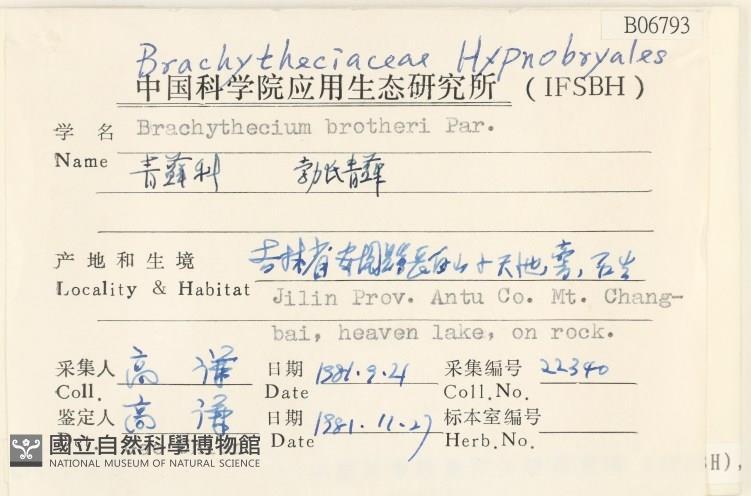 B06793
Brachytheciaceae Hypnobryales
中国科学院应用生态研究所 (IFSBH)
学名 Brachythecium brotheri Par.
Name 青蘚科 勃氏青蘚
产地和生境 吉林省安图縣長白山小天池旁,石生
Locality & Habitat Jilin Prov. Antu Co. Mt. Chang-
bai, heaven lake, on rock.
采集人 高谦 日期 1981.9.21 采集编号 22340
Coll. Date Coll.No.
鉴定人 高谦 日期 1981.11.27 标本室编号
Date Herb.No.
國立自然科學博物館
NATIONAL MUSEUM OF NATURAL SCIENCE
BH),